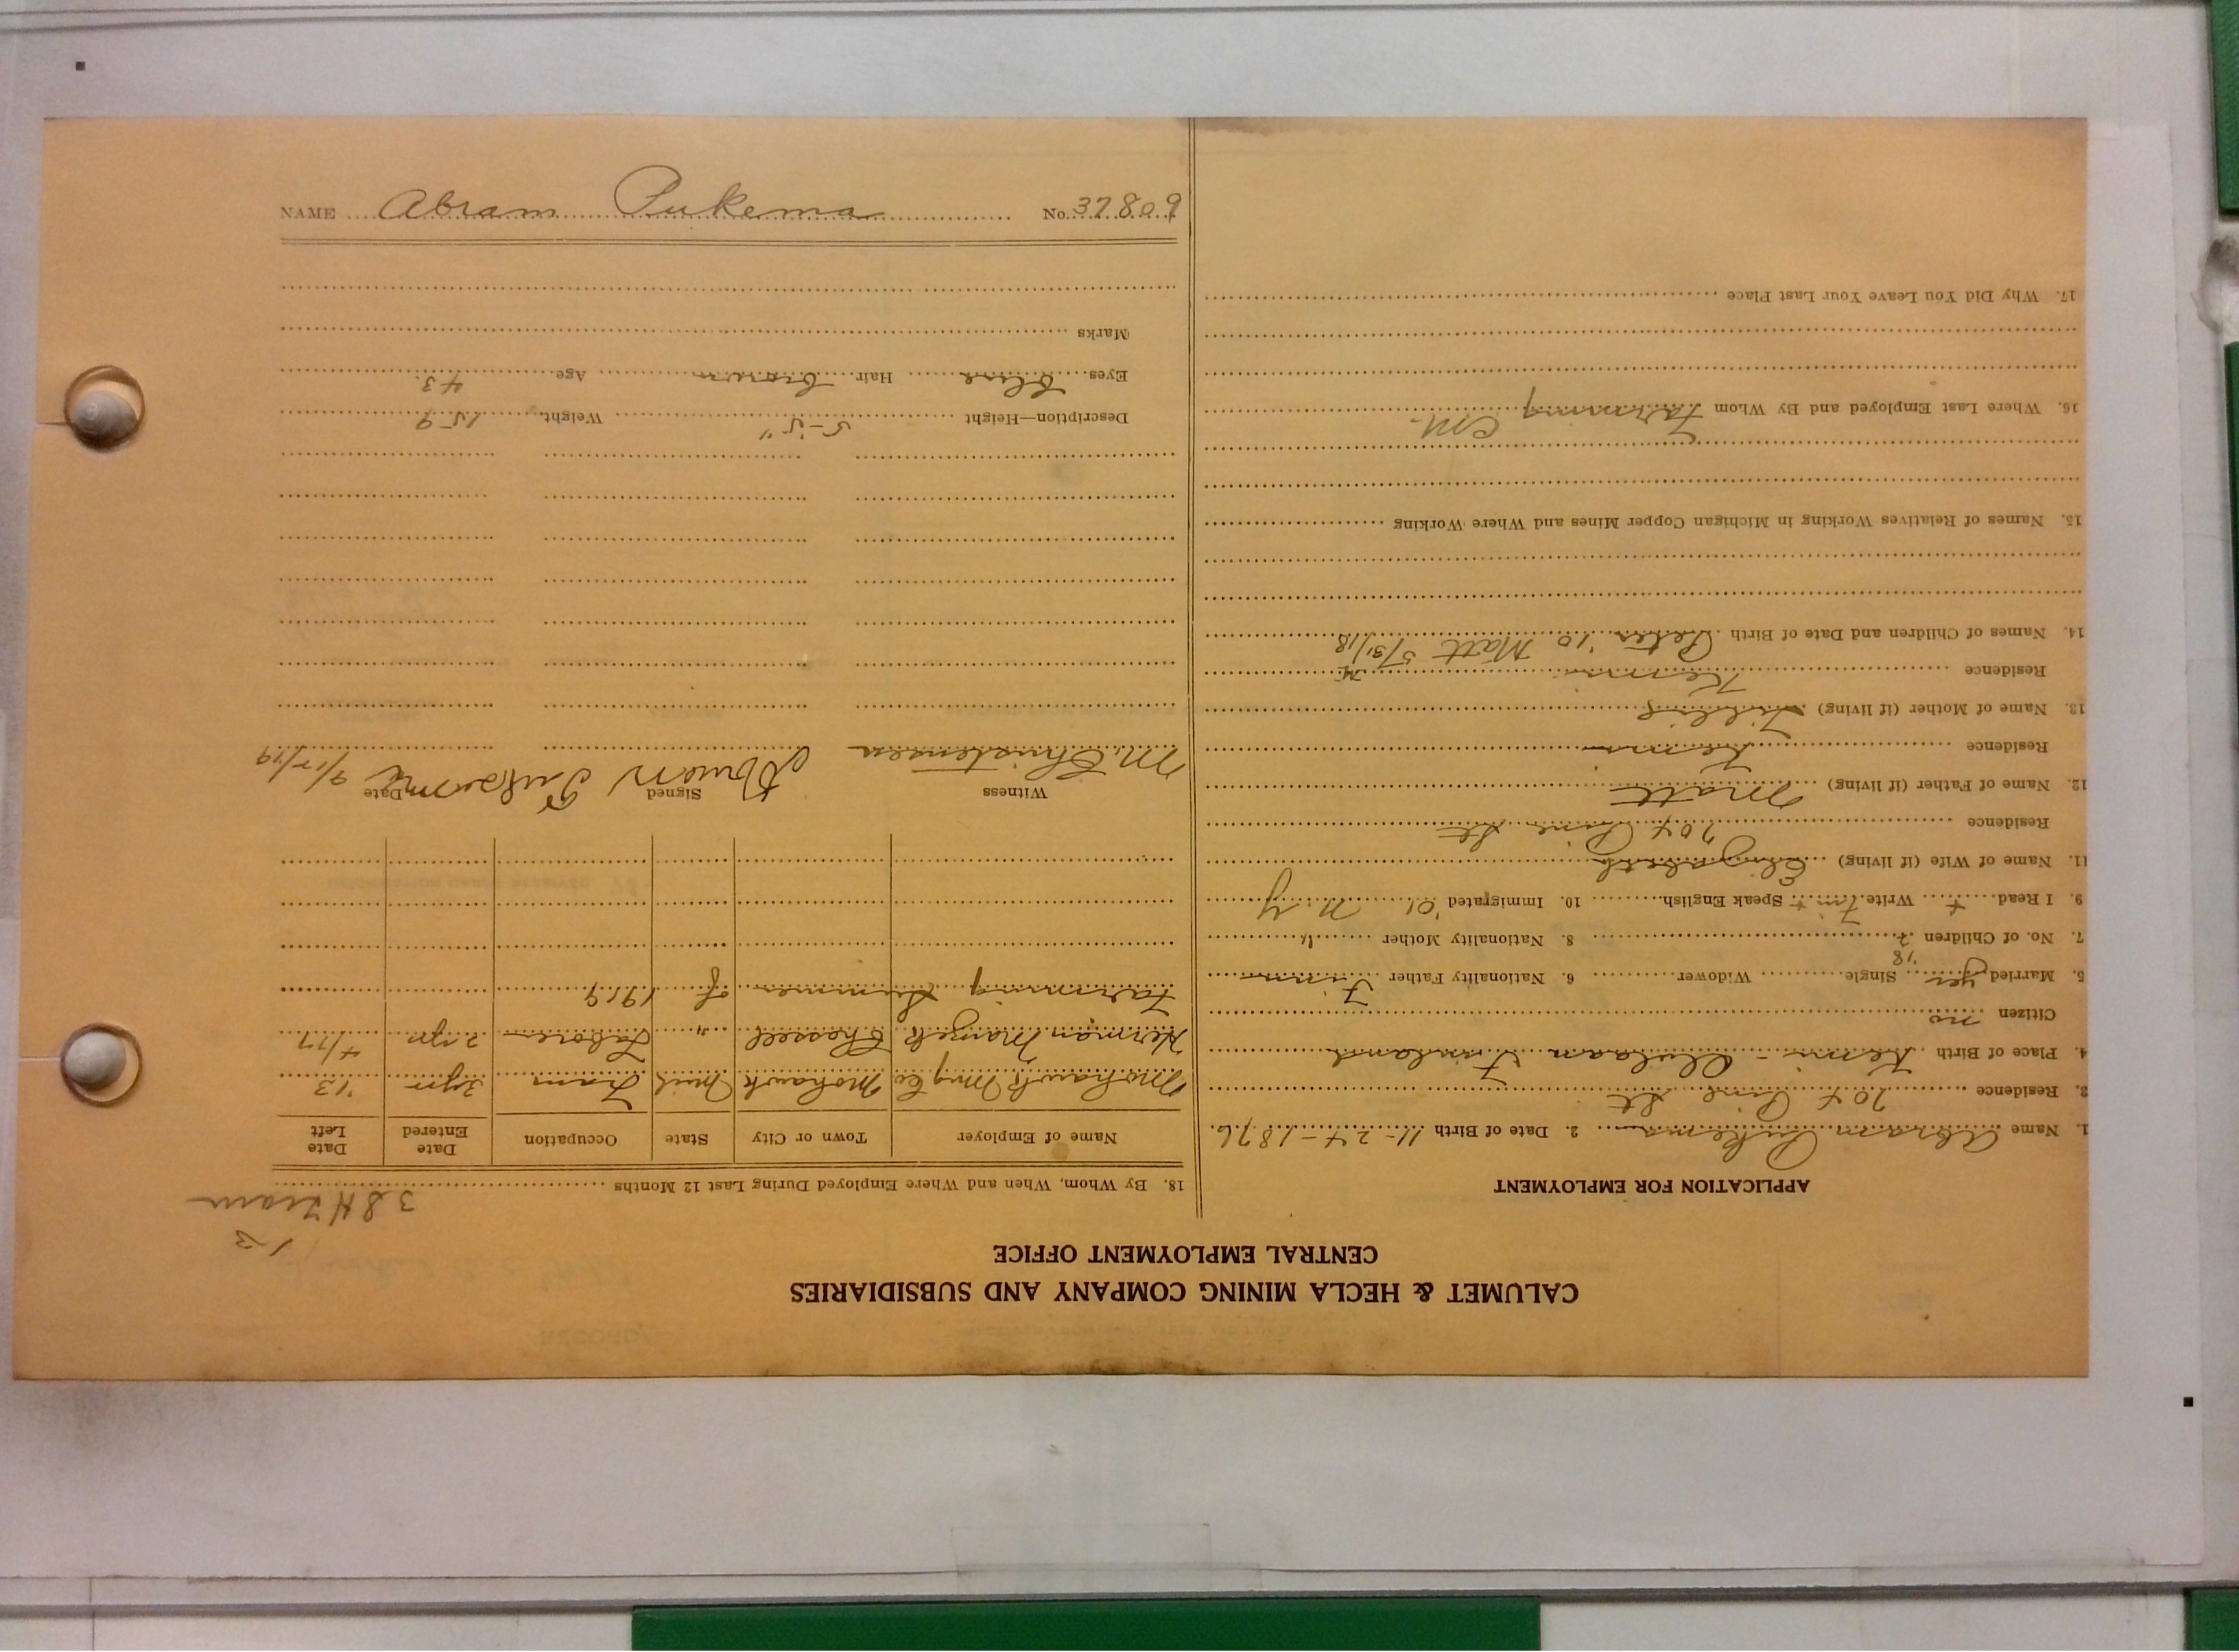 CALUMET & HECLA MINING COMPANY AND SUBSIDIARIES
CENTRAL EMPLOYMENT OFFICE
1-3
APPLICATION FOR EMPLOYMENT
1. Name Abram Pukema 2. Date of Birth 11-24-1876
3. Residence 704 Pine St
4. Place of Birth Kemi - Finland
Citizen no
5. Married yes '18 Single Widower 6. Nationality Father Finn
7. No. of Children 2 8. Nationality Mother "
9. I Read + Write Finn + Speak English 10. Immigrated '01 N.Y
11. Name of Wife (if living) Elizabeth
Residence 704 Pine St
12. Name of Father (if living) Matt
Residence Kemi
13. Name of Mother (if living)
Residence Kemi
14. Names of Children and Date of Birth Peter '10 Matt 5/31/18
15. Names of Relatives Working in Michigan Copper Mines and Where Working
16. Where Last Employed and By Whom Farming
17. Why Did You Leave Your Last Place
38 H Tram
18. By Whom, When and Where Employed During Last 12 Months
Name of Employer Town or City State Occupation Date Entered Date Left
Mohawk Mng Co Mohawk Mich Tram 3 yrs '13
Herman Chassell " Laborer 2 yrs 4/17
Farming Summer of 1919
Witness Signed Date
M. Christensen 9/15/19
Description—Height 5-5" Weight 159
Eyes blue Hair brown Age 43
Marks
NAME Abram Pukema No. 37809